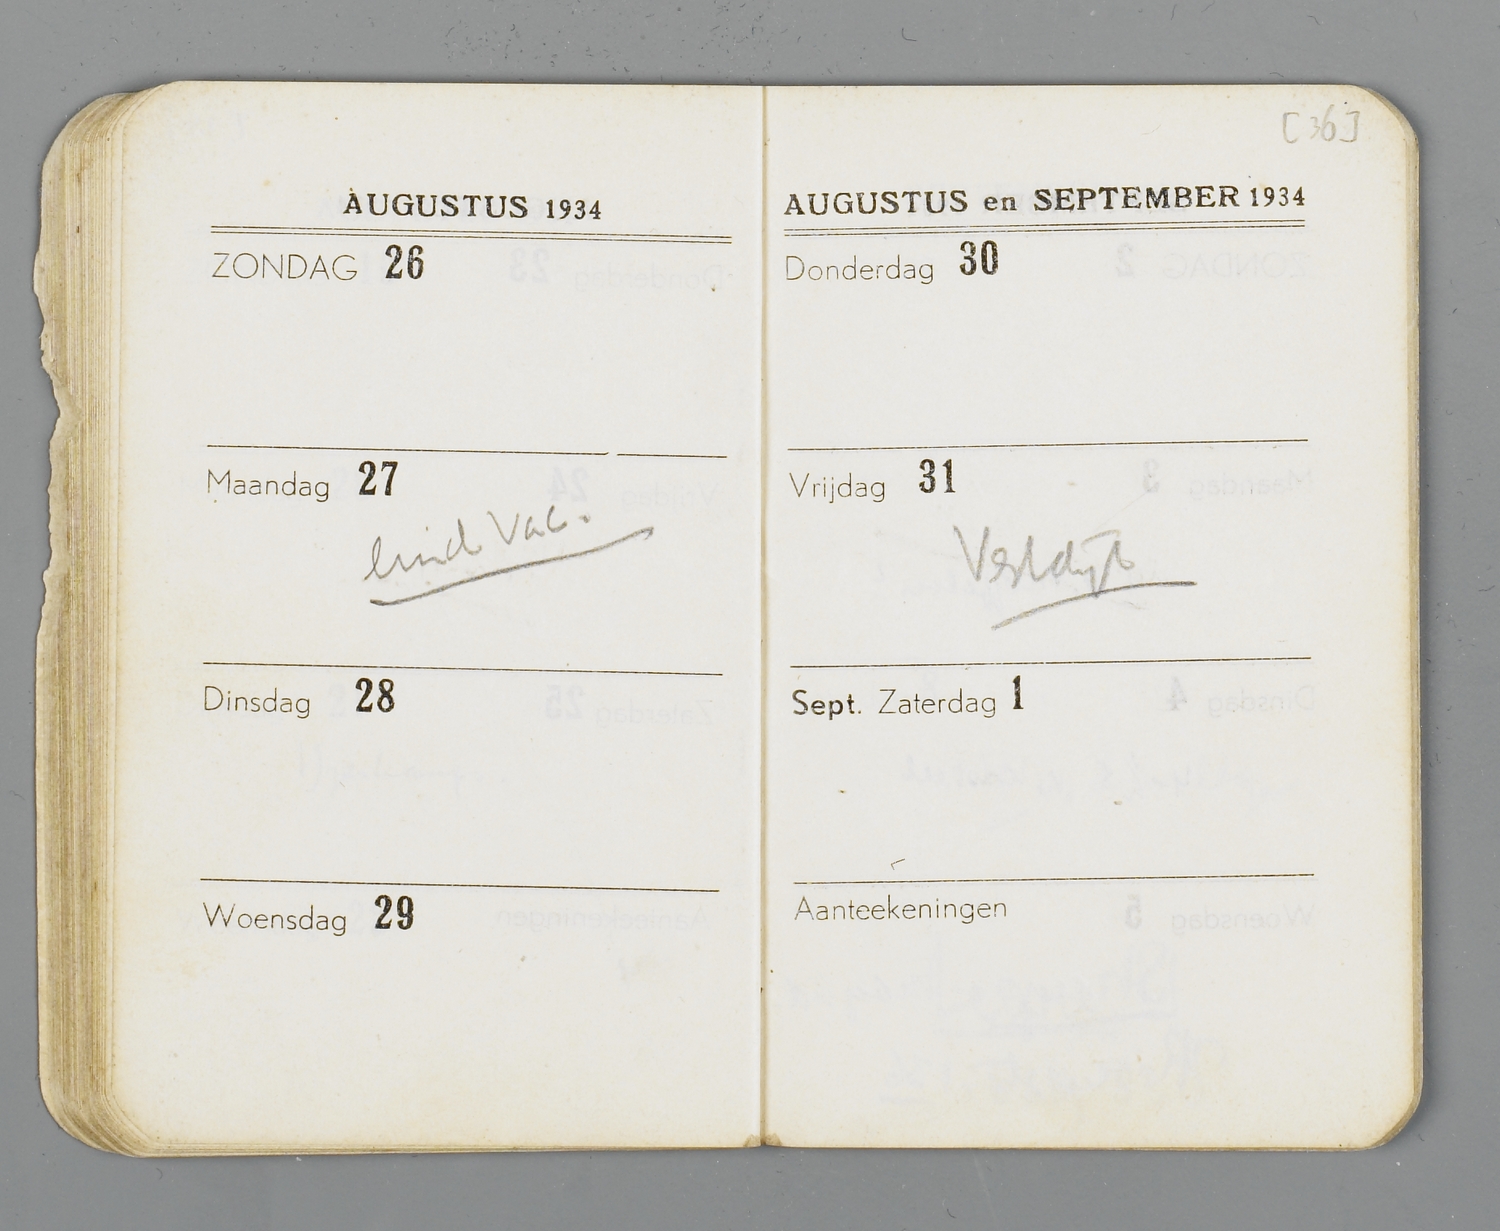 AUGUSTUS 1934
ZONDAG 26
Maandag 27
eind Vac.
Dinsdag 28
Woensdag 29
[36]
AUGUSTUS en SEPTEMBER 1934
Donderdag 30
Vrijdag 31
Sept. Zaterdag 1
Aanteekeningen